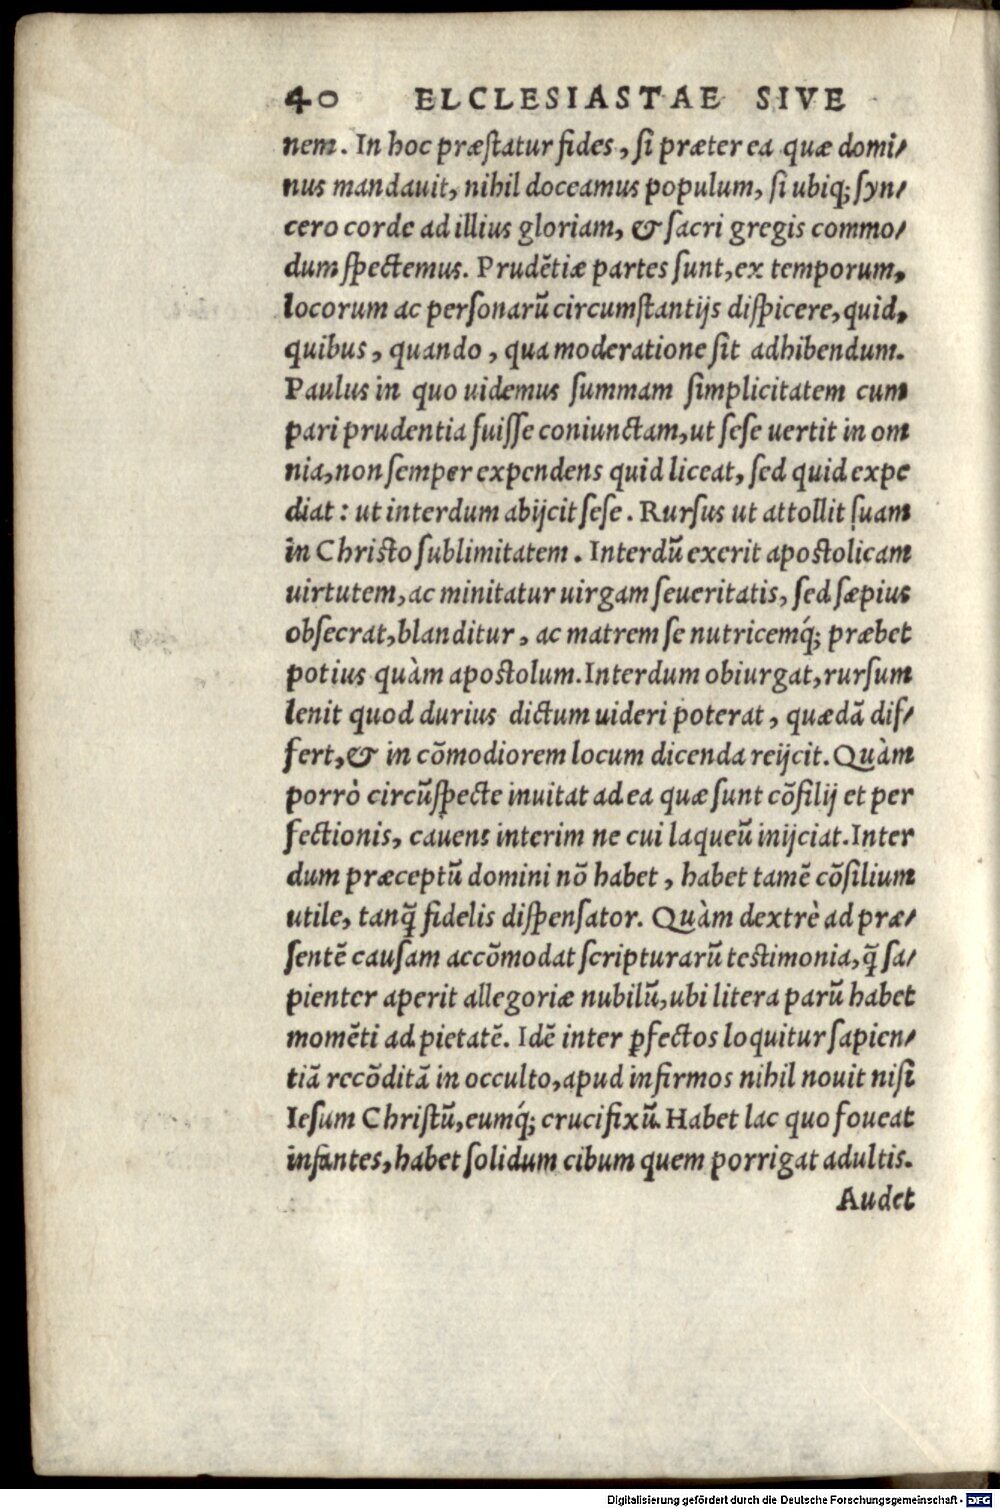 40 ELCLESIASTAE SIVE
nem. In hoc præſtatur fides, ſi præter ea quæ domi/
nus mandauit, nihil doceamus populum, ſi ubiq; ſyn/
cero corde ad illius gloriam, & ſacri gregis commo/
dum ſpectemus. Prudētiæ partes ſunt, ex temporum,
locorum ac perſonarū circumſtantijs diſpicere, quid,
quibus, quando, qua moderatione ſit adhibendum.
Paulus in quo uidemus ſummam ſimplicitatem cum
pari prudentia fuiſſe coniunctam, ut ſeſe uertit in om
nia, non ſemper expendens quid liceat, ſed quid expe
diat: ut interdum abijcit ſeſe. Rurſus ut attollit ſuam
in Chriſto ſublimitatem. Interdū exerit apoſtolicam
uirtutem, ac minitatur uirgam ſeueritatis, ſed ſæpius
obſecrat, blanditur, ac matrem ſe nutricemq́; præbet
potius quàm apoſtolum. Interdum obiurgat, rurſum
lenit quod durius dictum uideri poterat, quædā dif/
fert, & in cōmodiorem locum dicenda reijcit. Quàm
porrò circūſpecte inuitat ad ea quæ ſunt cōſilij et per
fectionis, cauens interim ne cui laqueū inijciat. Inter
dum præceptū domini nō habet, habet tamē cōſilium
utile, tanq̄ fidelis diſpenſator. Quàm dextrè ad præ/
ſentē cauſam accōmodat ſcripturarū teſtimonia, q̄ ſa/
pienter aperit allegoriæ nubilū, ubi litera parū habet
momēti ad pietatē. Idē inter ꝑfectos loquitur ſapien/
tiā recōditā in occulto, apud infirmos nihil nouit niſi
Ieſum Chriſtū, eumq́; crucifixū. Habet lac quo foueat
infantes, habet ſolidum cibum quem porrigat adultis.
Audet
Digitalisierung gefördert durch die Deutsche Forschungsgemeinschaft - DFG